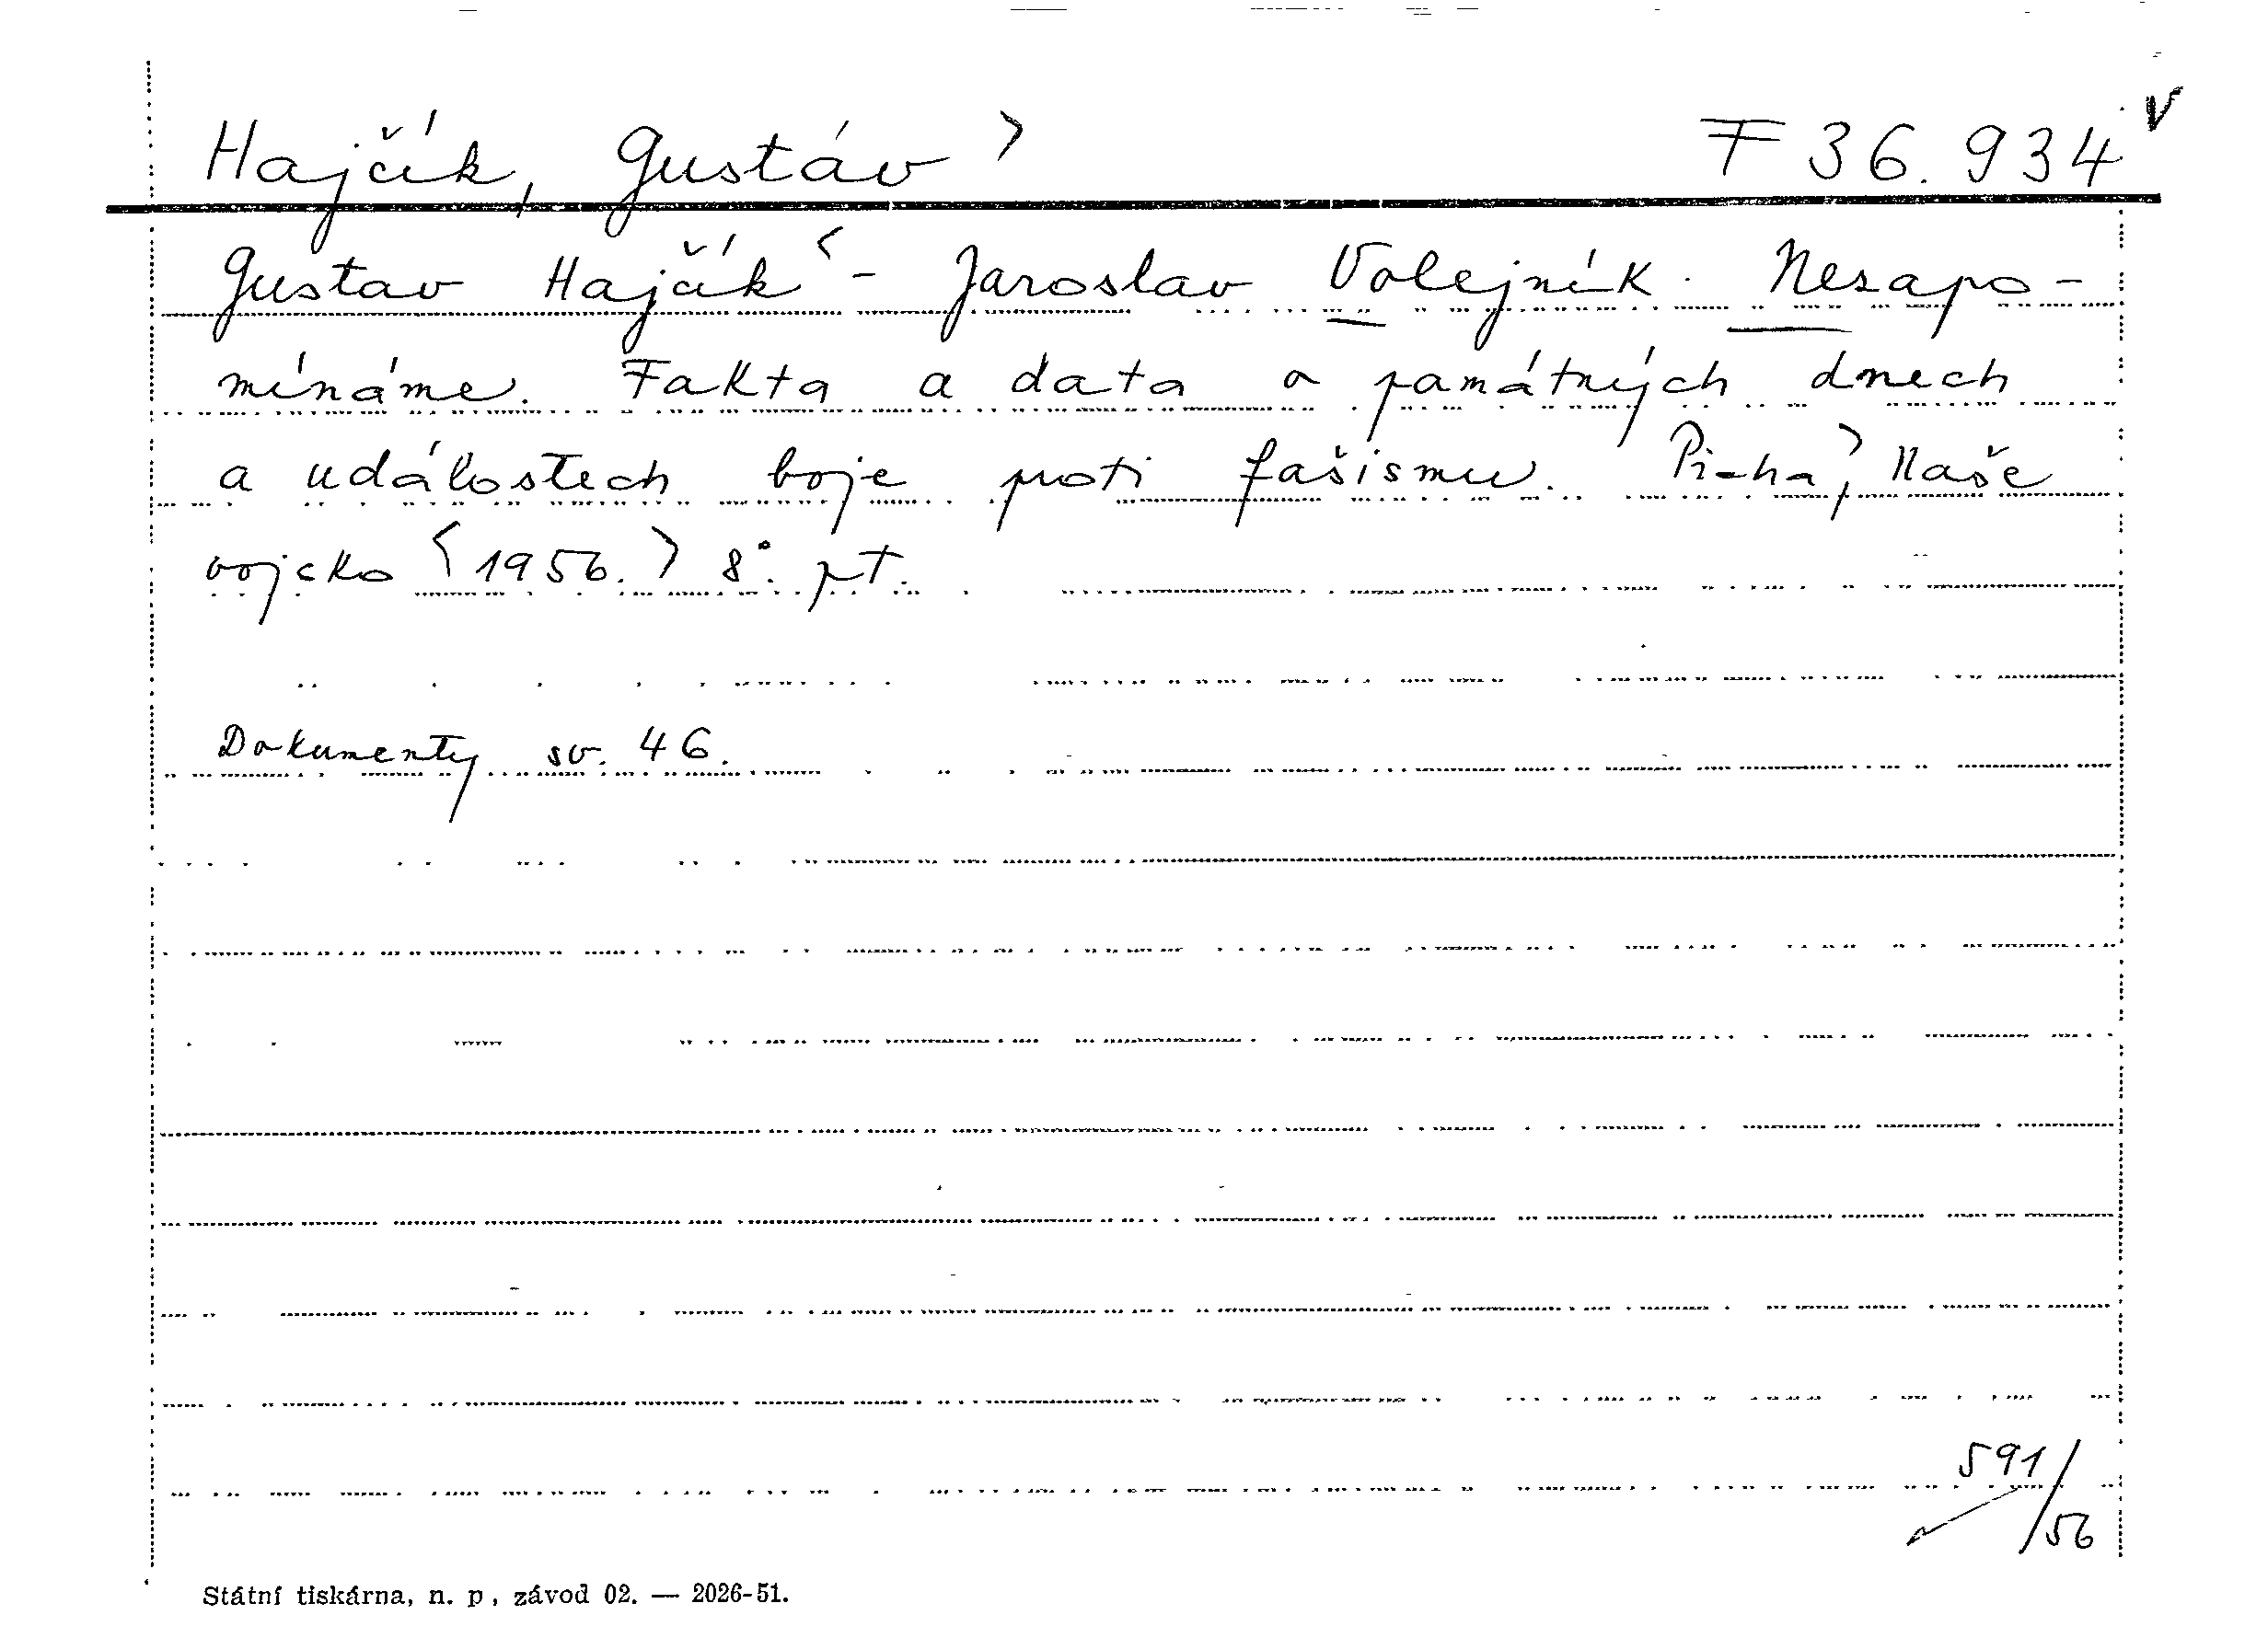 Hajčík, Gustáv> F 36.934 v
Gustav Hajčík< - Jaroslav Volejník. Nezapo-
mínáme. Fakta a data o památných dnech
a událostech boje proti fašismu. Praha>, Naše
vojsko <1956.> 8°. pt.
Dokumenty sv. 46.
591/56
Státní tiskárna, n. p, závod 02. — 2026-51.